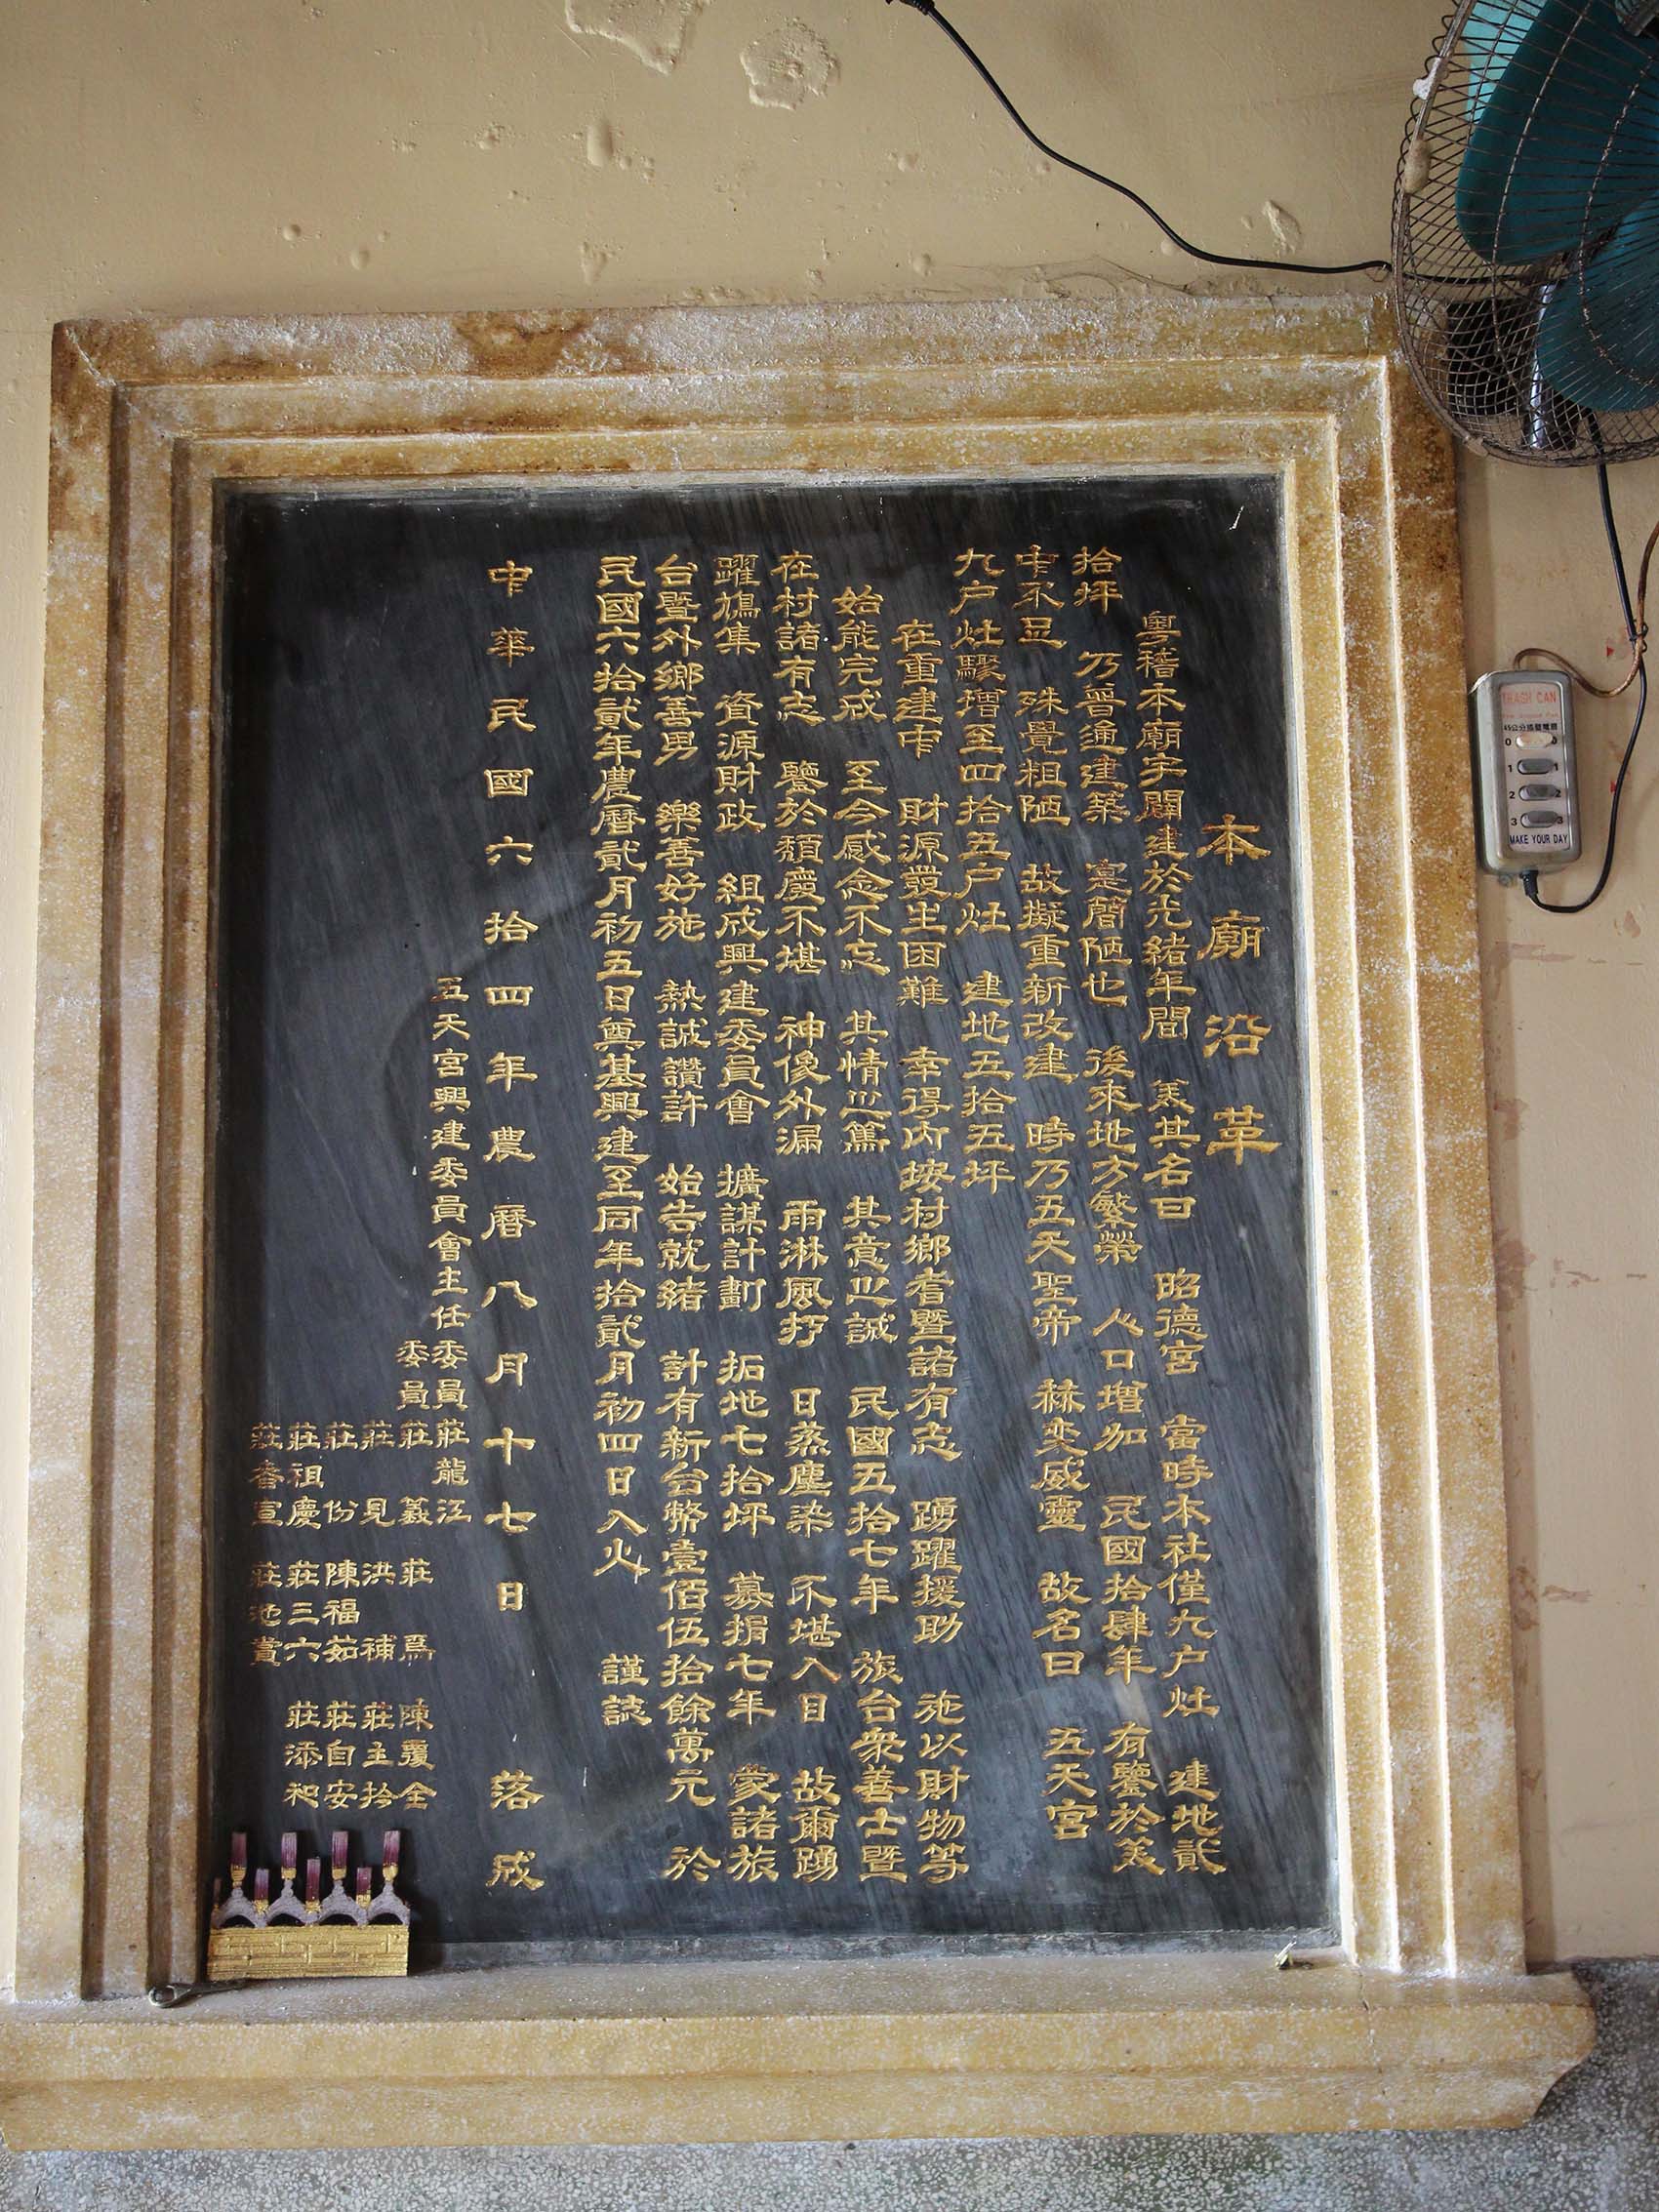 本廟沿革
粵稽本廟宇闢建於光緒年間　羙其名曰　昭德宮　當時本社僅九户灶　建地貳
拾坪　乃普通建築　寔簡陋也　後來地方繁榮　人口增加　民國拾肆年　有鑒於羙
中不足　殊覺粗陋　故擬重新改建　時乃五天聖帝　赫奕威靈　故名曰　五天宮
九户灶驟增至四拾五户灶　建地五拾五坪
在重建中　財源發生困難　幸得內垵村鄉耆暨諸有志　踴躍援助　施以財物等
始能完成　至今感念不忘　其情之篤　其意之誠　民國五拾七年　旅台衆善士暨
在村諸有志　鑒於頹廢不堪　神像外漏　雨淋風打　日蒸塵染　不堪入目　故爾踴
躍鳩集　資源財政　組成興建委員會　擴謀計劃　拓地七拾坪　募捐七年　蒙諸旅
台暨外鄉善男　樂善好施　熱誠讚許　始告就緒　計有新台幣壹佰伍拾餘萬元　於
民國六拾貳年農曆貳月初五日奠基興建至同年拾貳月初四日入火　謹誌
中華民國六拾四年農曆八月十七日　落成
五天宮興建委員會主任委員莊龍江
委員莊義　莊為　陳覆全
莊見　洪補　莊主拎
莊份　陳福茹　莊自安
莊祖慶　莊三六　莊添祀
莊春宣　莊池賞
TRASH CAN
45公分掛壁電扇
0 0
1 1
2 2
3 3
MAKE YOUR DAY